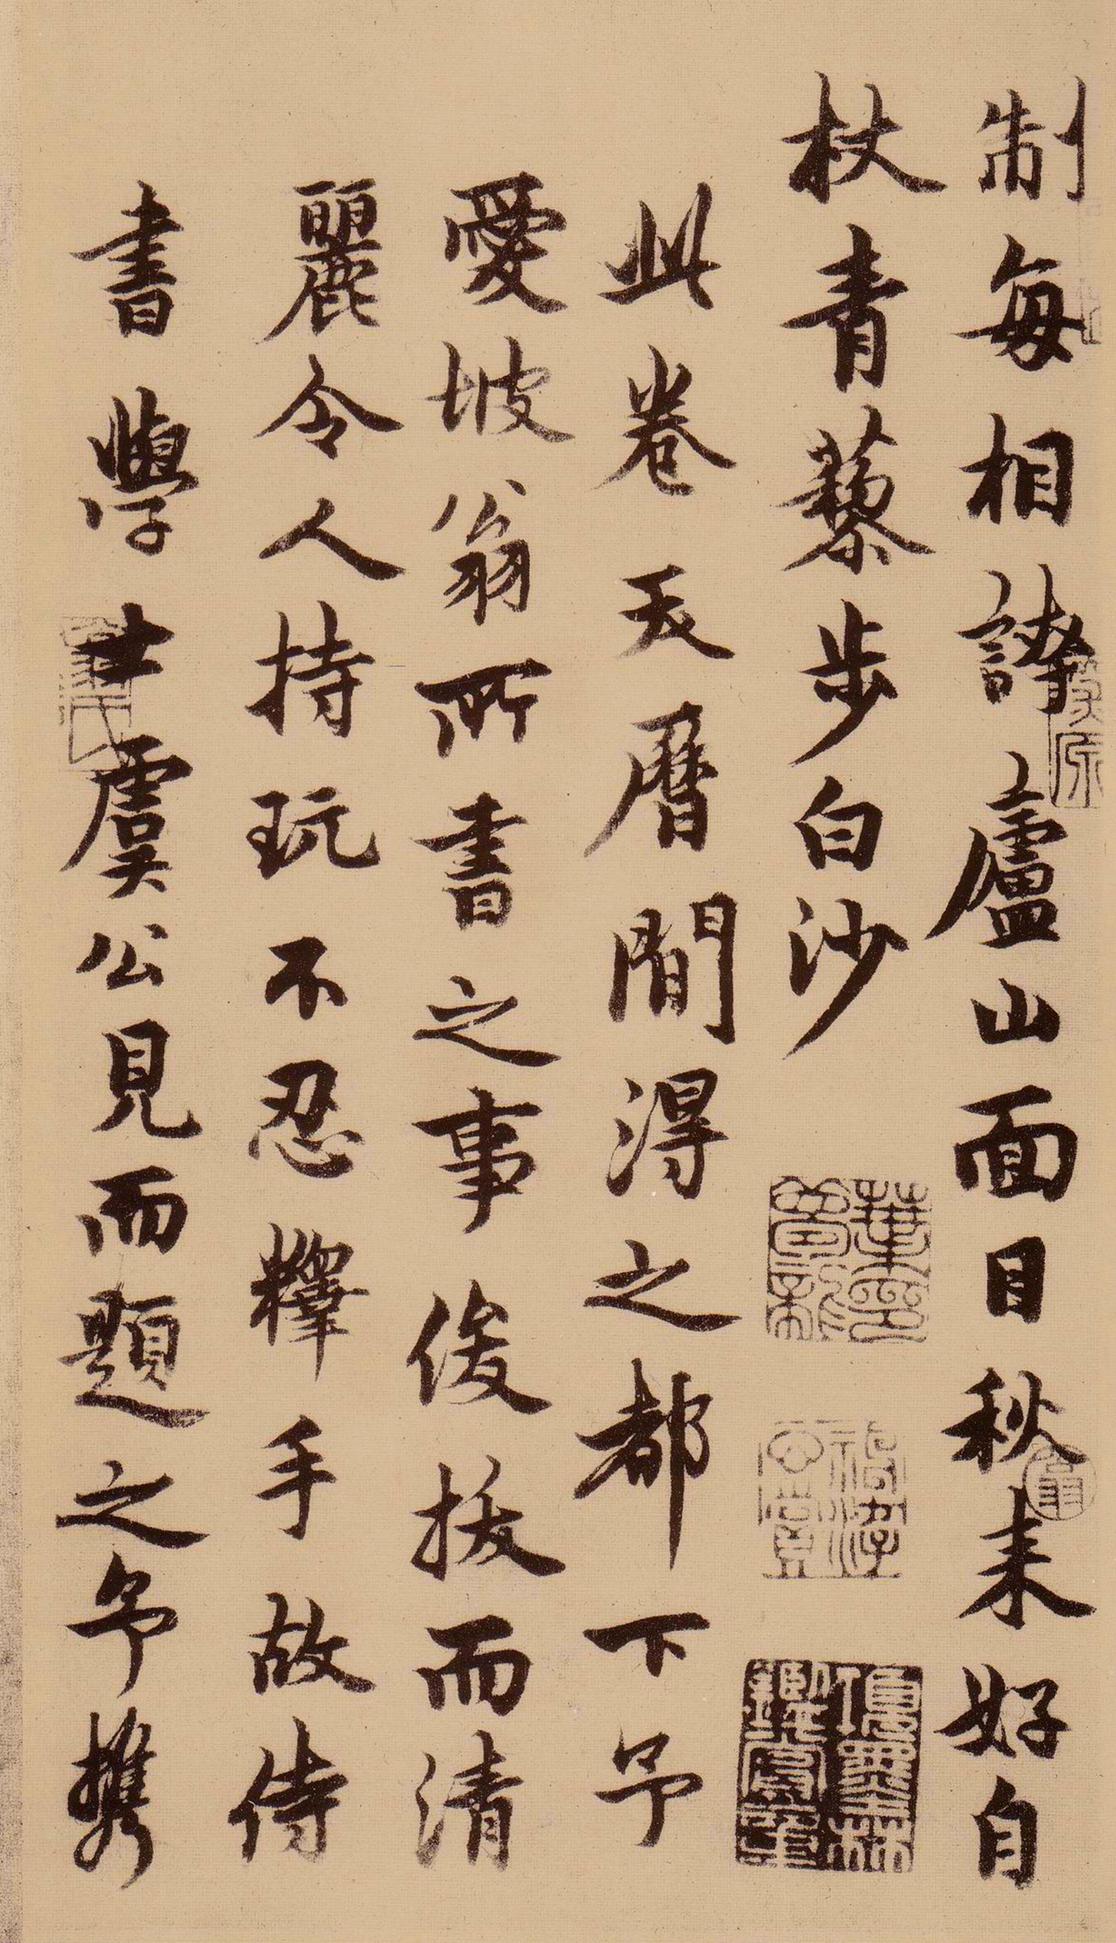 制每相誇廬山面目秋来好自
杖青藜步白沙
項墨林鑑賞章
此卷天曆間得之都下予
愛坡翁所書之事俊拔而清
麗令人持玩不忍釋手故侍
書學士虞公見而題之予攜